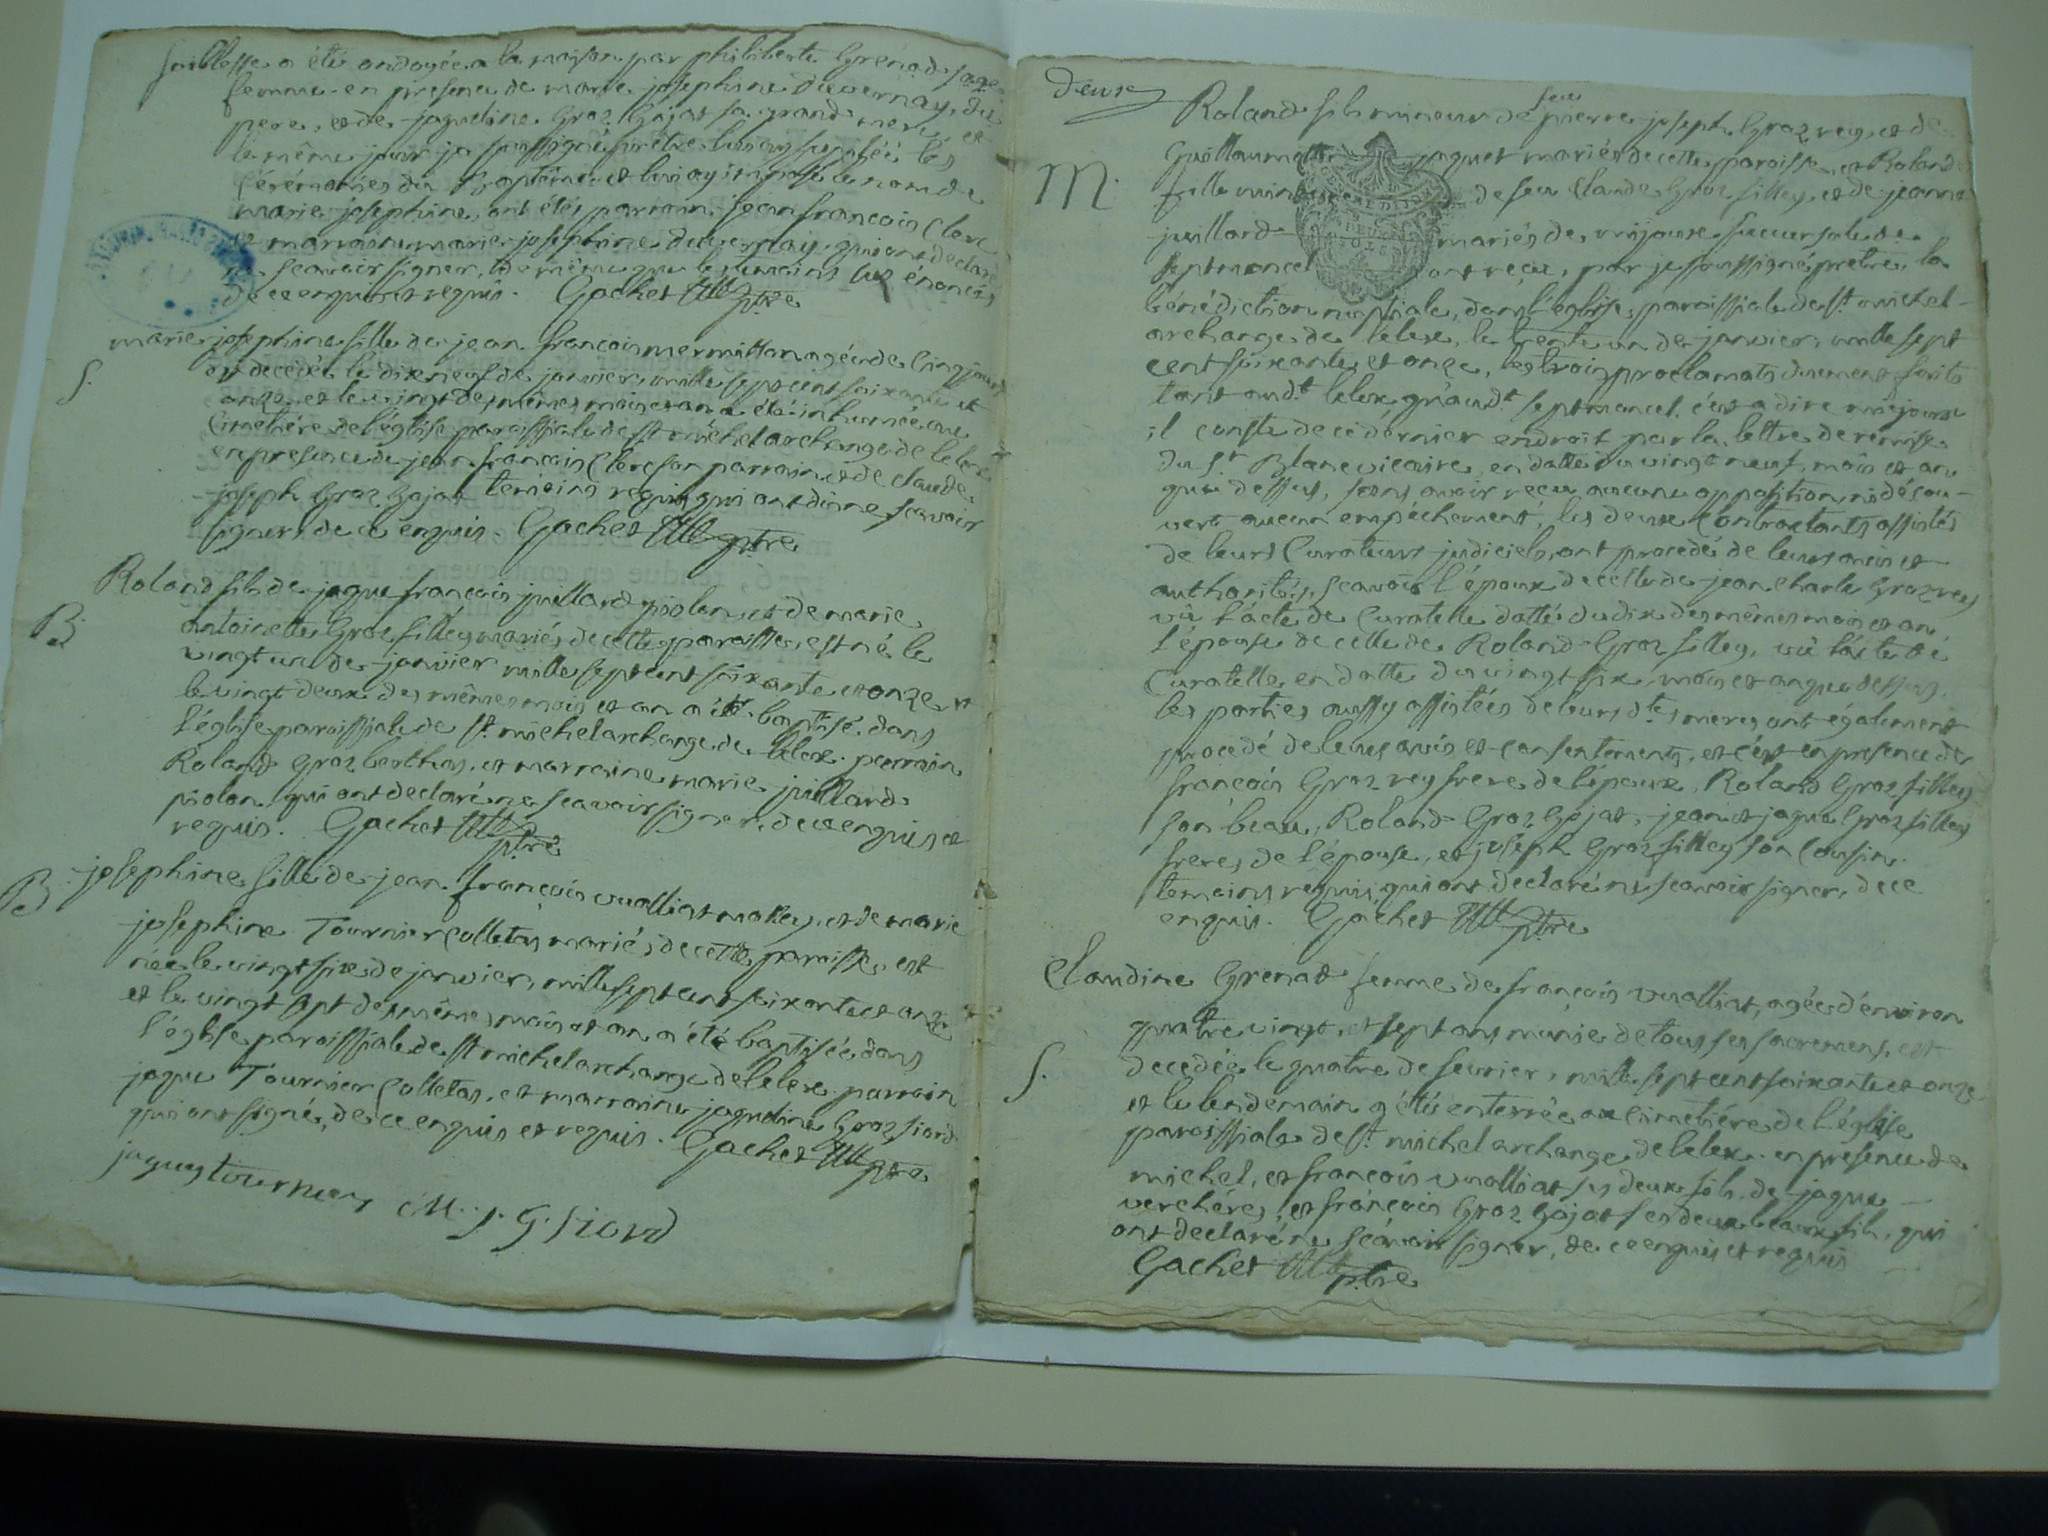 foiblesse a été ondoyée a la maison par philiberte Grenad sage
femme en presence de marie josephine duvernay, du
pere, et de jaqueline Groz Gojat sa grand mere, et
le même jour je soussigné prêtre luy ay suppléé les
Cérémonies du Baptême et luy ay imposé le nom de
marie josephine, ont étés parrain jean françois Clerc
et marraine marie josephine duvernay qui ont declaré
ne scavoir signer, de même que les temoins sus énoncés
de ce enquis et requis. Gachet ptre
marie josephine fille de jean françois mermillon agée de Cinq jours
S.
est decedée le dixneuf de janvier, mille sept cent soixante et
onze, et le vingt des mêmes mois et an a été inhumée au
Cimetiére de l'église paroissiale de St michel archange de lelex
en presence de jean françois Clerc son parrain, et de claude
joseph Groz Gojat temoins requis qui ont dit ne scavoir
signer de ce enquis. Gachet ptre
Roland fils de jaque françois juillard piolon, et de marie
B.
antoinette Groz filley mariés de cette paroisse, est né le
vingt un de janvier mille sept cent soixante et onze, et
le vingt deux des mêmes mois et an a été baptisé dans
l'église paroissiale de St michel archange de lelex. parrain
Roland Groz berthas, et marraine marie juillard
piolon, qui ont declaré ne scavoir signer, de ce enquis et
requis. Gachet ptre
josephine fille de jean françois vualliat mattey, et de marie
B.
josephine Tournier Colletas mariés de cette paroisse, est
née le vingt six de janvier, mille sept cent soixante et onze
et le vingt sept des mêmes mois et an a été baptisée dans
l'église paroissiale de St michel archange de lelex. parrain
jaque Tournier Colletas, et marraine jaqueline Groz fiord
qui ont signé, de ce enquis et requis. Gachet ptre
jaques tournier M. J. G. fiord
deux
feu
Roland fils mineur de pierre joseph Groz rey, et de
M.
Guillaumette jaquet mariés de cette paroisse, et Rolande
fille mineure de feu Claude Groz filley, et de jeanne
juillard mariés de mijoux succursale de
septmoncel ont reçu, par je soussigné prêtre, la
bénédiction nuptiale, dans l'église paroissiale de St michel
archange de lelex, le trente un de janvier, mille sept
cent soixante et onze, les trois proclamats duement faits
tant aud.t lelex qu'aud.t septmoncel, c'est a dire mijoux
il conste de ce dernier endroit par la lettre de remise
du S.r Blanc vicaire, en datte du vingt neuf, mois et an
que dessus, sans avoir reçu aucune opposition, ni décou-
vert aucun empechement, les deux Contractants assistés
de leurs Curateurs judiciels, ont procedé de leurs avis et
authorités, scavoir l'époux de celle de jean Charle Groz rey
vû l'acte de Curatelle datté du dix des mêmes mois et an,
l'épouse de celle de Roland Groz filley, vû l'acte de
Curatelle, en datte du vingt six, mois et an que dessus.
les parties aussy assistées de leurs d.tes meres ont également
procedé de leurs avis et consentements, et c'est en presence de
françois Groz rey frere de l'époux, Roland Groz filley
son beau, Roland Groz Gojat, jean et jaque Groz filley
freres de l'épouse, et joseph Groz filley son Cousin
temoins requis, qui ont declaré ne scavoir signer, de ce
enquis. Gachet ptre
Claudine Grenad femme de françois vualliat, agée d'environ
quatre vingt et sept ans munie de tous ses sacremens, est
S.
decedée le quatre de fevrier, mille sept cent soixante et onze
et le lendemain a été enterrée au cimetiére de l'église
paroissiale de St michel archange de lelex. en presence de
michel, et françois vualliat ses deux fils, de jaque
verchére, et françois Groz Gojat ses deux beaux fils, qui
ont declaré ne scavoir signer, de ce enquis et requis
Gachet ptre